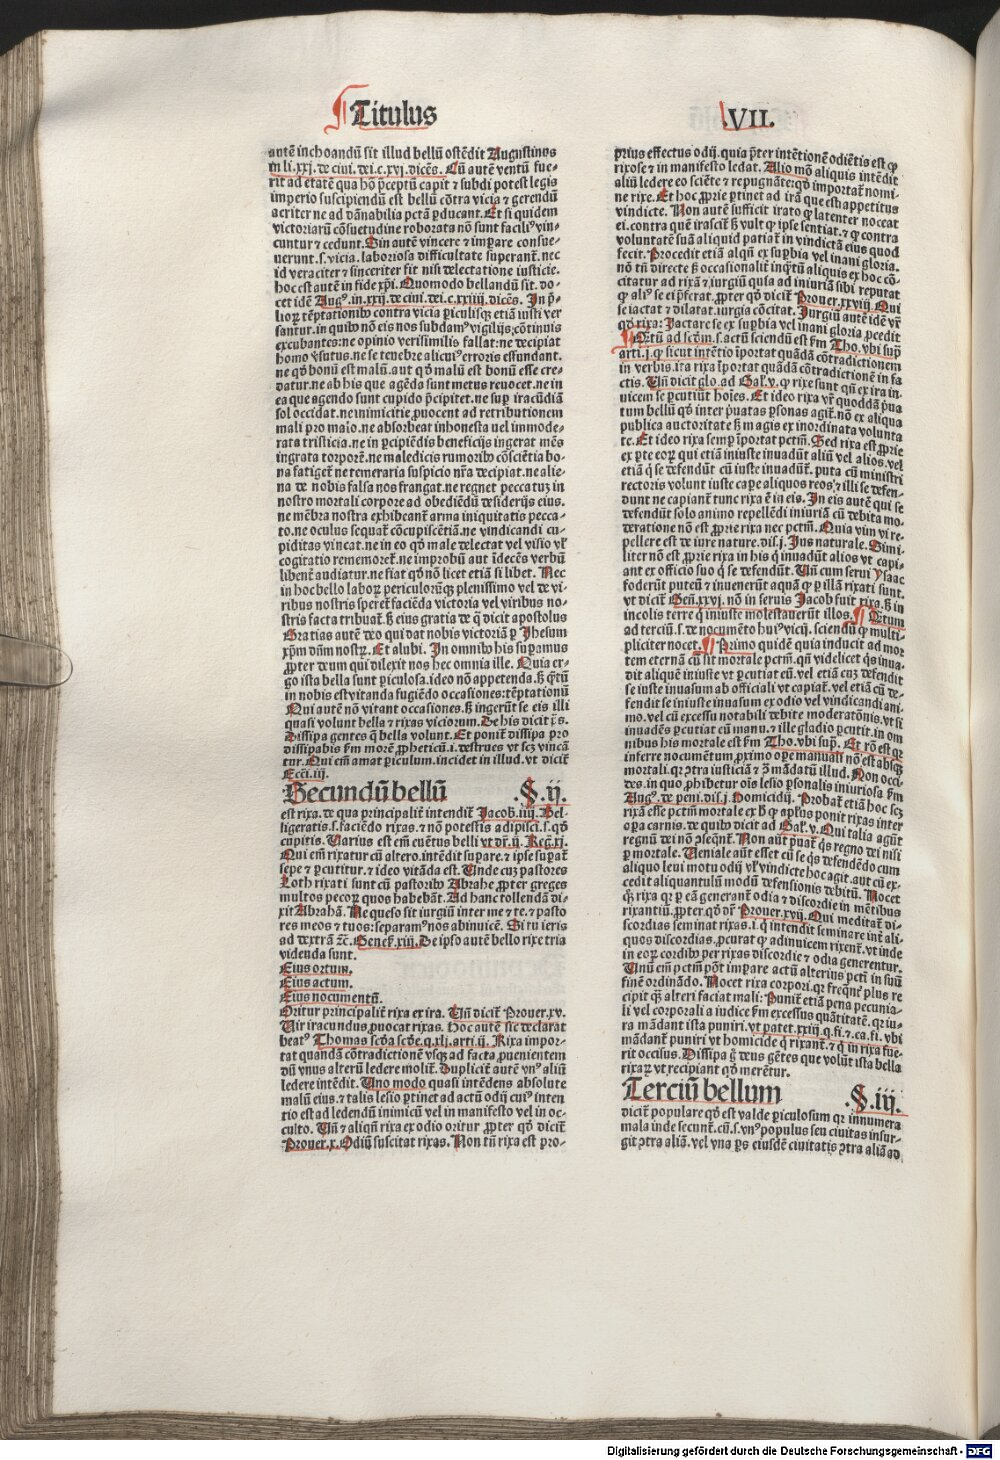 Titulus
.VII.
autē inchoandū sit illud bellū ostēdit Augustinus
in li.xxj. de ciui. dei.c.xvj. dicēs. Cū autē ventū fue-
rit ad etatē qua hō p̄ceptū capit ⁊ subdi potest legis
imperio suscipiendū est bellū cōtra vicia ⁊ gerendū
acriter ne ad dānabilia pctā ꝑducant. Et si quidem
victoriarū cōsuetudine roborata nō sunt faciliꝰ vin-
cuntur ⁊ cedunt. Sin autē vincere ⁊ imꝑare consue-
uerunt.s.vicia. laboriosa difficultate superant̄. nec
id veraciter ⁊ sinceriter fit nisi delectatione iusticie.
hoc est autē in fide xp̄i. Quomodo bellandū sit. do-
cet idē Augꝰ. in.xxij. de ciui. dei.c.xxiiij. dicēs. In p̄-
lioꝝ tēptationibꝰ contra vicia ꝑiculisqꝫ etiā iusti ver
santur. in quibꝰ nō eis nos subdamꝰ vigilijs ꝯtinuis
excubantes: ne opinio verisimilis fallat: ne decipiat
homo v̓sutus. ne se tenebre alicuiꝰ erroris effundant.
ne qd̓ bonū est malū. aut qd̓ malū est bonū esse cre-
datur. ne ab his que agēda sunt metus reuocet. ne in
ea que agendo sunt cupido p̄cipitet. ne suꝑ iracūdiā
sol occidat. ne inimicitie ꝓuocent ad retributionem
mali pro malo. ne absorbeat inhonesta vel immode-
rata tristicia. ne in ꝑcipiēdis beneficijs ingerat mēs
ingrata torporē. ne maledicis rumoribꝰ cōsciētia bo-
na fatiget̄ ne temeraria suspicio nr̄a decipiat. ne alie-
na de nobis falsa nos frangat. ne regnet peccatuꝫ in
nostro mortali corpore ad obediēdū desiderijs eius.
ne mēbra nostra exhibeant̄ arma iniquitatis pecca-
to. ne oculus sequat̄ cōcupiscētiā. ne vindicandi cu-
piditas vincat. ne in eo qd̓ male delectat vel visio vl̓
cogitatio rememoret̄. ne improbū aut īdecēs verbū
libent̄ audiatur. ne fiat qd̓ nō licet etiā si libet. Nec
in hoc bello laboꝝ periculorūqꝫ plenissimo vel de vi-
ribus nostris speret̄ faciēda victoria vel viribus no-
stris facta tribuat̄. sꝫ eius gratia de q̄ dicit apostolus
Gratias autē deo qui dat nobis victoriā ꝑ Jhesum
xp̄m dn̄m nostrꝝ. Et alubi. In omnibꝰ his suꝑamus
ꝓpter deum qui dilexit nos hec omnia ille. Quia er-
go ista bella sunt ꝑiculosa. ideo nō appetenda. sꝫ q̄tū
in nobis est vitanda fugiēdo occasiones: tēptationū
Qui autē nō vitant occasiones. sꝫ ingerūt se eis illi
quasi volunt bella ⁊ rixas viciorum. De his dicit p̄s.
Dissipa gentes q̄ bella volunt. Et ponit̄ dissipa pro
dissipabis ẜm morē ꝓpheticū.i. destrues vt scꝫ vincā
tur. Qui em̄ amat ꝑiculum. incidet in illud. vt dicit̄
Ecci.iij.
Secundū bellū .§.ij.
est rixa. de qua principalit̄ intendit̄ Jacob.iiij. Bel-
ligeratis.s. faciēdo rixas. ⁊ nō potestis adipisci.s. qd̓
cupitis. Varius est em̄ euētus belli vt dr̄.ij. Reg.xj.
Qui em̄ rixatur cū altero. intēdit suꝑare. ⁊ ipse suꝑat̄
sepe ⁊ ꝑcutitur. ⁊ ideo vitāda est. Unde cuꝫ pastores
Loth rixati sunt cū pastoribꝰ Abrahe ꝓpter greges
multos pecoꝝ quos habebāt. Ad hanc tollendā di-
xit Abrahā. Ne queso sit iurgiū inter me ⁊ te. ⁊ pasto
res meos ⁊ tuos: separamꝰ nos abinuicē. Si tu ieris
ad dextrā ⁊c̄. Geneẜ.xiij. De ipso autē bello rixe tria
videnda sunt.
Eius ortum.
Eius actum.
Eius nocumentū.
Oritur principalit̄ rixa ex ira. Vn̄ dicit̄ Prouer.xv.
Vir iracundus ꝓuocat rixas. Hoc autē sic declarat
beatꝰ Thomas scd̓a scd̓e.q.xlj. arti.ij. Rixa impor-
tat quandā cōtradictionē vsqꝫ ad facta ꝓuenientem
dū vnus alterū ledere molit̄. Duplicit̄ autē vnꝰ aliū
ledere intēdit. Uno modo quasi intēdens absolute
malū eius. ⁊ talis lesio ꝑtinet ad actū odij cuiꝰ inten
tio est ad ledendū inimicū vel in manifesto vel in oc-
culto. Vn̄ ⁊ aliqn̄ rixa ex odio oritur ꝓpter qd̓ dicit̄
Prouer.x. Odiū suscitat rixas. Non tn̄ rixa est pro-
prius effectus odij. quia p̄ter intētionē odiētis est ꝙ
rixose ⁊ in manifesto ledat. Alio mō aliquis intēdit
aliū ledere eo sciēte ⁊ repugnāte: qd̓ importat̄ nomi-
ne rixe. Et hoc ꝓprie ꝑtinet ad irā que est appetitus
vindicte. Non autē sufficit irato ꝙ latenter noceat
ei. contra quē irascit̄ sꝫ vult ꝙ ipse sentiat. ⁊ ꝙ contra
voluntatē suā aliquid patiat̄ in vindictā eius quod
fecit. Procedit etiā alqn̄ ex suꝑbia vel inani gloria.
nō tn̄ directe sꝫ occasionalit̄ inq̄tū aliquis ex hoc cō-
citatur ad rixā ⁊ iurgiū quia ad iniuriā sibi reputat
ꝙ aliꝰ se ei p̄ferat. ꝓpter qd̓ dicit̄ Prouer.xxviij. Qui
se iactat ⁊ dilatat. iurgia cōcitat. Jurgiū autē idē vr̄
qd̓ rixa: Jactare se ex suꝑbia vel inani gloria ꝓcedit
Ortū ad scd̓m.s. actū sciendū est ẜm Tho. vbi suꝑ
arti.j. ꝙ sicut intētio īportat quādā cōtradictionem
in verbis. ita rixa īportat quādā cōtradictionē in fa
ctis. Vn̄ dicit glo. ad Gal̓.v. ꝙ rixe sunt qn̄ ex ira in-
uicem se ꝑcutiūt hoīes. Et ideo rixa vr̄ quoddā ṗua
tum bellū qd̓ inter ṗuatas ꝑsonas agit̄. nō ex aliqua
publica auctoritate sꝫ magis ex inordinata volunta
te. Et ideo rixa semꝑ īportat pctm̄. Sed rixa est ꝓprie
ex ꝑte eoꝝ qui etiā iniuste inuadūt aliū vel alios. vel
etiā q̇ se defendūt cū iuste inuadūt̄. puta cū ministri
rectoris volunt iuste capere aliquos reos. ⁊ illi se defen-
dunt ne capiant̄ tunc rixa ē in eis. In eis autē qui se
defendūt solo animo repellēdi iniuriā cū debita mo-
deratione nō est ꝓprie rixa nec pctm̄. Quia vim vi re-
pellere est de iure nature. dis.j. Jus naturale. Simi-
liter nō est ꝓprie rixa in his q̇ inuadūt alios vt capi-
ant ex officio suo q̇ se defendūt. Vn̄ cum serui Ysaac
foderūt puteū ⁊ inuenerūt aquā ꝙ ꝑ illā rixati sunt.
vt dicit̄ Gen̄.xxvj. nō in seruis Jacob fuit rixa. sꝫ in
incolis terre q̇ iniuste molestauerūt illos. Ortum
ad terciū.s. de nocumēto huiꝰ vicij. sciendū ꝙ multi-
pliciter nocet. Primo quidē quia inducit ad mor
tem eternā cū sit mortale pctm̄. qn̄ videlicet q̇s inua-
dit aliquē iniuste vt ꝑcutiat eū. vel etiā cuꝫ defendit
se iuste inuasum ab officiali vt capiat̄. vel etiā cū de-
fendit se iniuste inuasum ex odio vel vindicandi ani-
mo. vel cū excessu notabili debite moderatōnis. vt si
inuadēs ꝑcutiat cū manu. ⁊ ille gladio ꝑcutit. in om
nibus his mortale est ẜm Tho. vbi suꝑ. Et rō est qꝛ
inferre nocumētum ꝓximo oꝑe manuali nō est absqꝫ
mortali. qꝛ ꝯtra iusticiā ⁊ ꝯ̄ mādatū illud. Non occi
des. in quo ꝓhibetur oīs lesio ꝑsonalis iniuriosa ẜm
Augꝰ. de peni. dis.j. Homicidiꝫ. Probat̄ etiā hoc scꝫ
rixā esse pctm̄ mortale ex hͦ ꝙ apl̓us ponit rixas inter
oꝑa carnis. de quibꝰ dicit ad Gal̓.v. Qui talia agūt
regnū dei nō ꝯseqn̄t̄. Non aūt puat̄ q̇s regno dei nisi
ꝑ mortale. Veniale aūt esset cū se q̇s defendēdo cum
aliquo leui motu odij vl̓ vindicte hoc agit. aut cū ex-
cedit aliquantulū modū defensionis debitū. Nocet
q̇ꝫ rixa qꝛ ꝑ eā generant̄ odia ⁊ discordie in mētibus
rixantiū. ꝓpter qd̓ dr̄ Prouer.xvij. Qui meditat̄ di-
scordias seminat rixas.i. q̇ intendit seminare int̄ ali-
quos discordias. ꝓcurat ꝙ adinuicem rixent̄. vt inde
in eoꝝ cordibꝰ per rixas discordie ⁊ odia generentur.
Unū em̄ pctm̄ pōt impare actū alterius pcti in suū
finē ordinādo. Nocet rixa corpori. qꝛ freqn̄t̄ plus re
cipit q̄ꝫ alteri faciat mali: Punit̄ etiā pena pecunia-
li vel corporali a iudice ẜm excessus quātitatē. qꝛ iu-
ra mādant ista puniri. vt patet.xxiij.q.fi. ⁊ ca.fi. vbi
mādant̄ puniri vt homicide q̇ rixant̄. ⁊ q̇ in rixa fue-
rit occisus. Dissipa ḡ deus gētes que volūt ista bella
rixaꝝ vt recipiant qd̓ merētur.
Terciū bellum .§.iij.
dicit̄ populare qd̓ est valde ꝑiculosum qꝛ innumera
mala inde secunt̄. cū.s. vnꝰ populus seu ciuitas insur-
git ꝯtra aliā. vel vna ꝑs eiusdē ciuitatis ꝯtra aliā ad
Digitalisierung gefördert durch die Deutsche Forschungsgemeinschaft - DFG